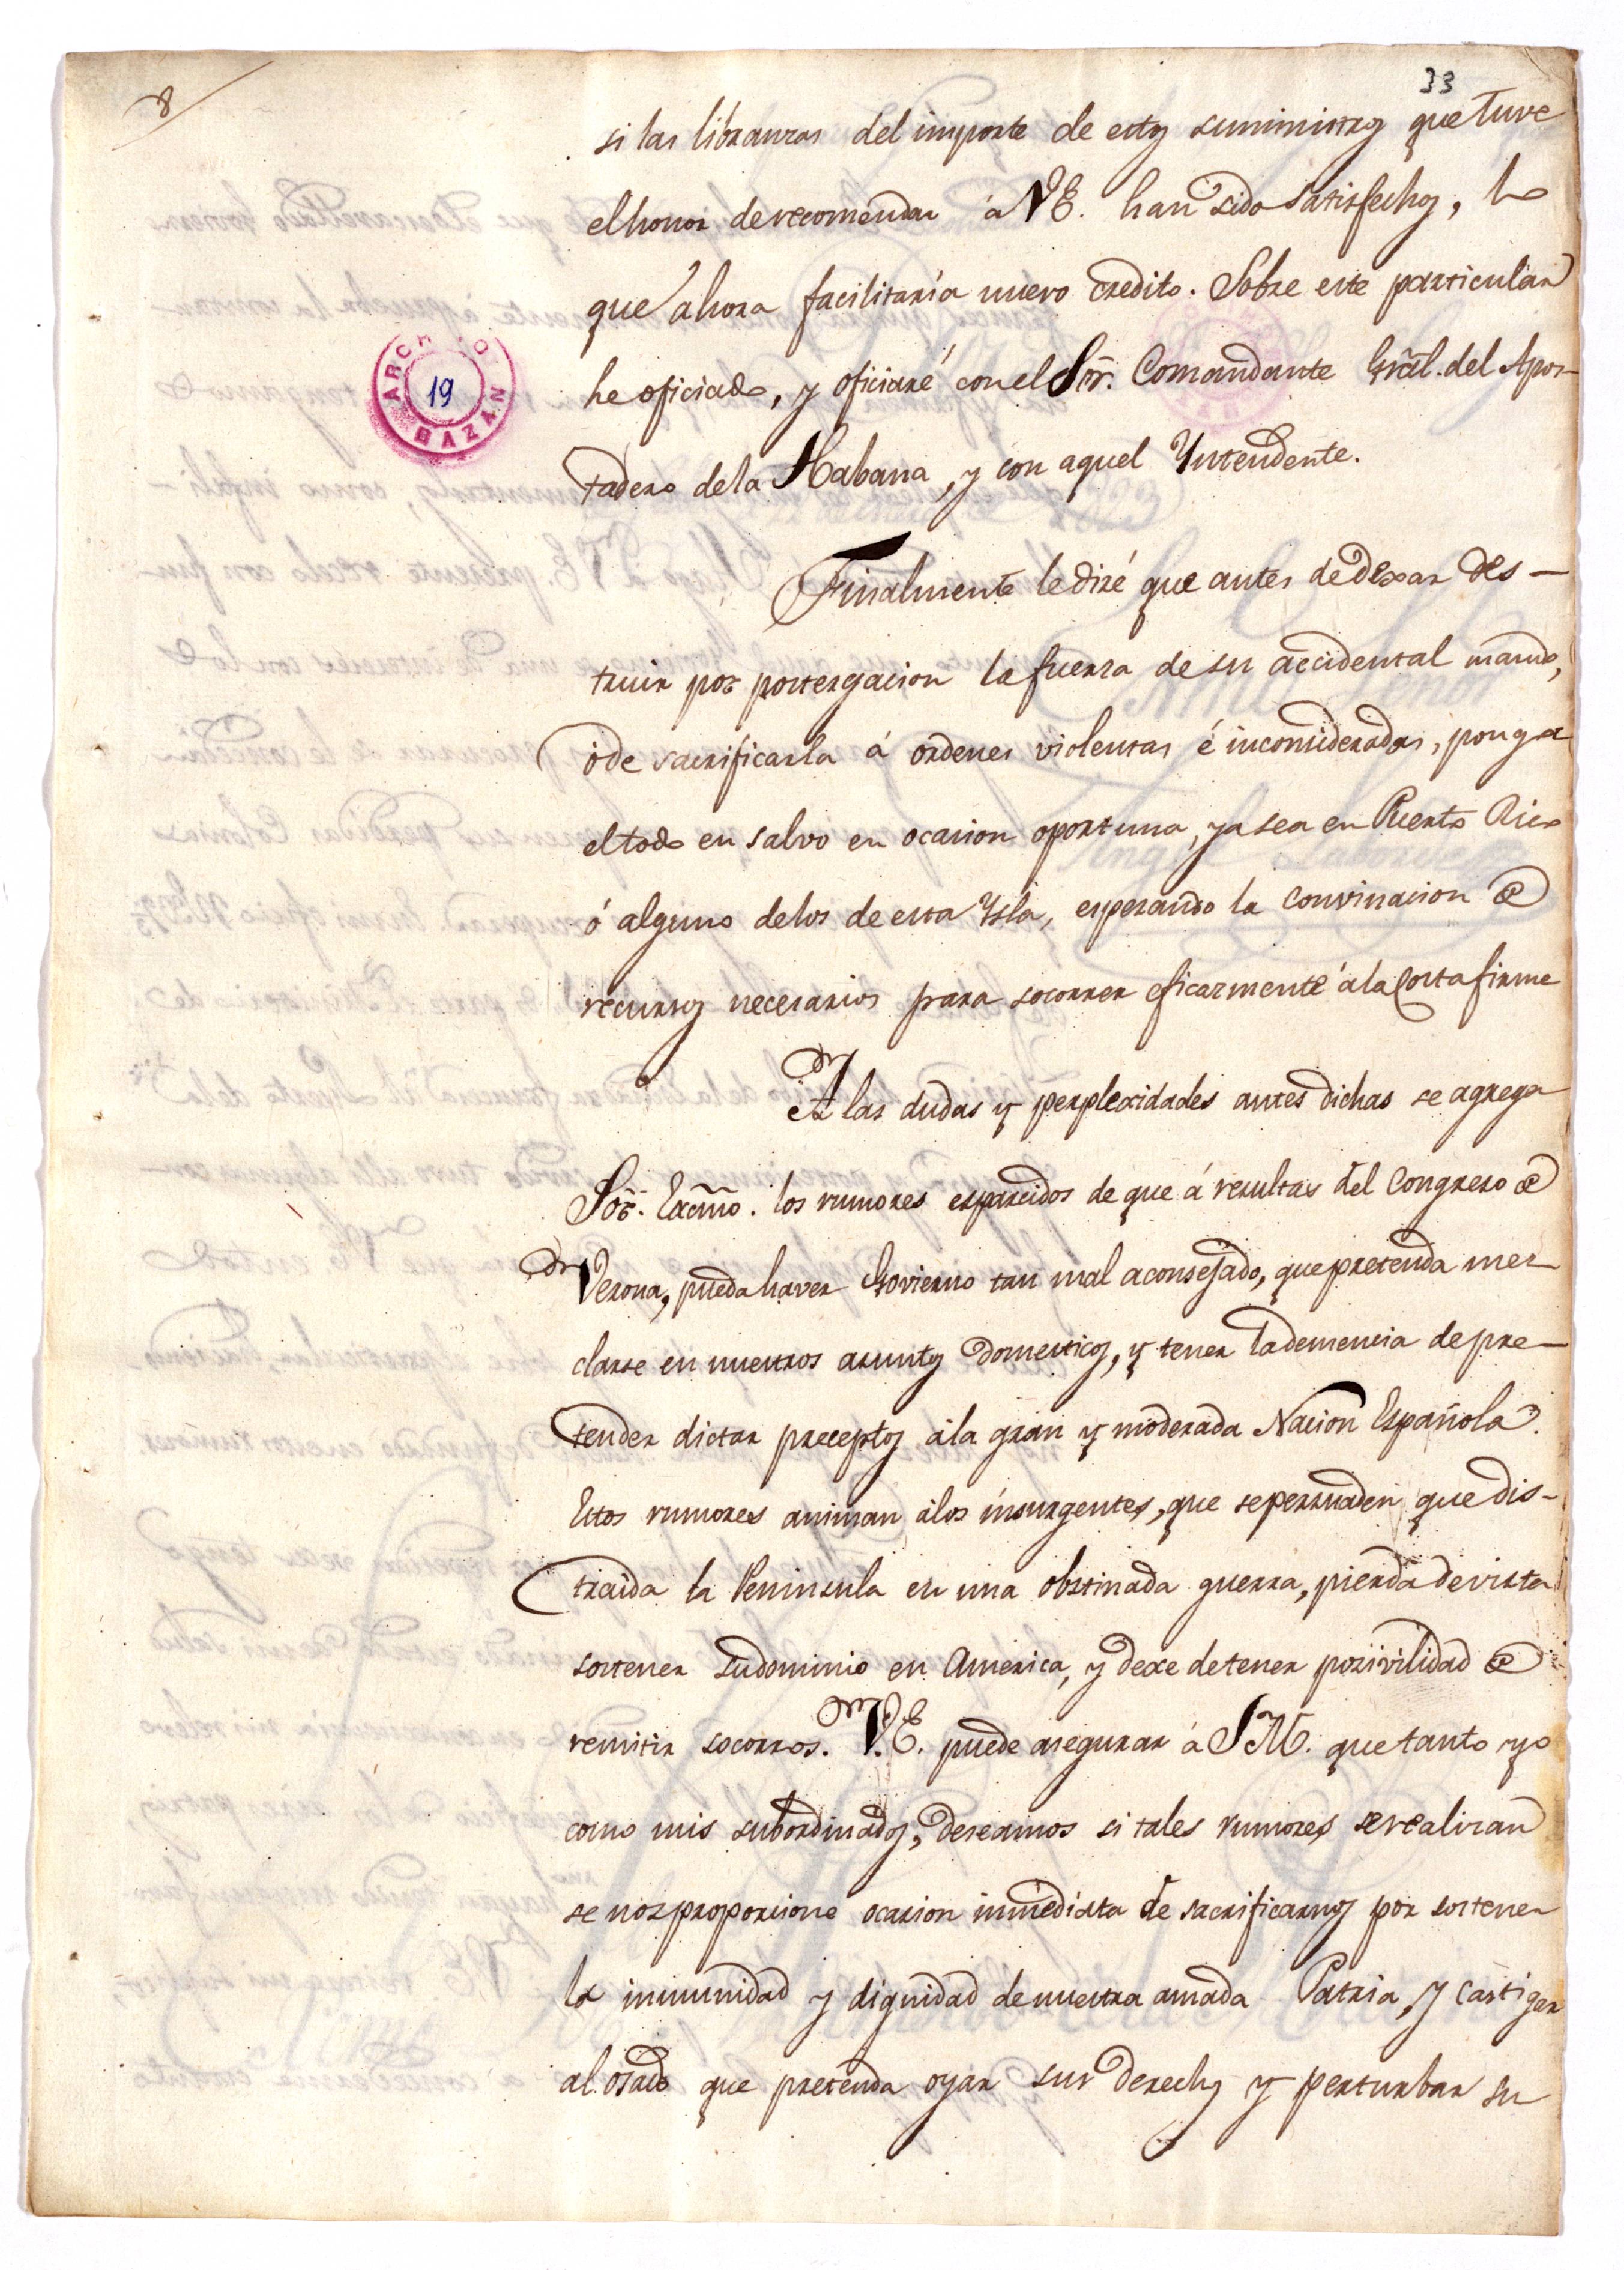 8
33
si las libranzas del importe de estos suministros que tuve
el honor de recomendar á V.E. han sido satisfechos, lo
que ahora facilitaría nuevo credito. Sobre este particular
he oficiado, y oficiaré con el Sõr. Comandante Grãl. del Apos-
tadero de la Habana, y con aquel Yntendente.
ARCHIVO
19
BAZAN
Finalmente le diré que antes de dexar des-
truir por postergacion la fuerza de su accidental mando,
ó de sacrificarla á ordenes violentas é inconsideradas, ponga
el todo en salvo en ocasion oportuna, ya sea en Puerto Rico
ó alguno de los de esta Ysla, esperando la convinacion @
recursos necesarios para socorrer eficazmente á la Costa firme
A las dudas y perplexidades antes dichas se agrega
Sõr. Excm̃o. los rumores esparcidos de que á resultas del Congreso @
Verona, pueda haver Govierno tan mal aconsejado, que pretenda mez-
clarse en nuestros asuntos domesticos, y tener la demencia de pre-
tender dictar preceptos á la gran y moderada Nacion Española.
Estos rumores animan á los insurgentes, que se persuaden que dis-
traida la Peninsula en una obstinada guerra, pierda de vista
sostener su dominio en America, y dexe de tener posivilidad @
remitir socorros. V.E. puede asegurar á S.M. que tanto yo
como mis subordinados, deseamos si tales rumores se realizan
se nos proporcione ocasion inmediata de sacrificarnos por sostener
la inmunidad y dignidad de nuestra amada Patria, y castigar
al osado que pretenda oyar sus derechos y perturbar su